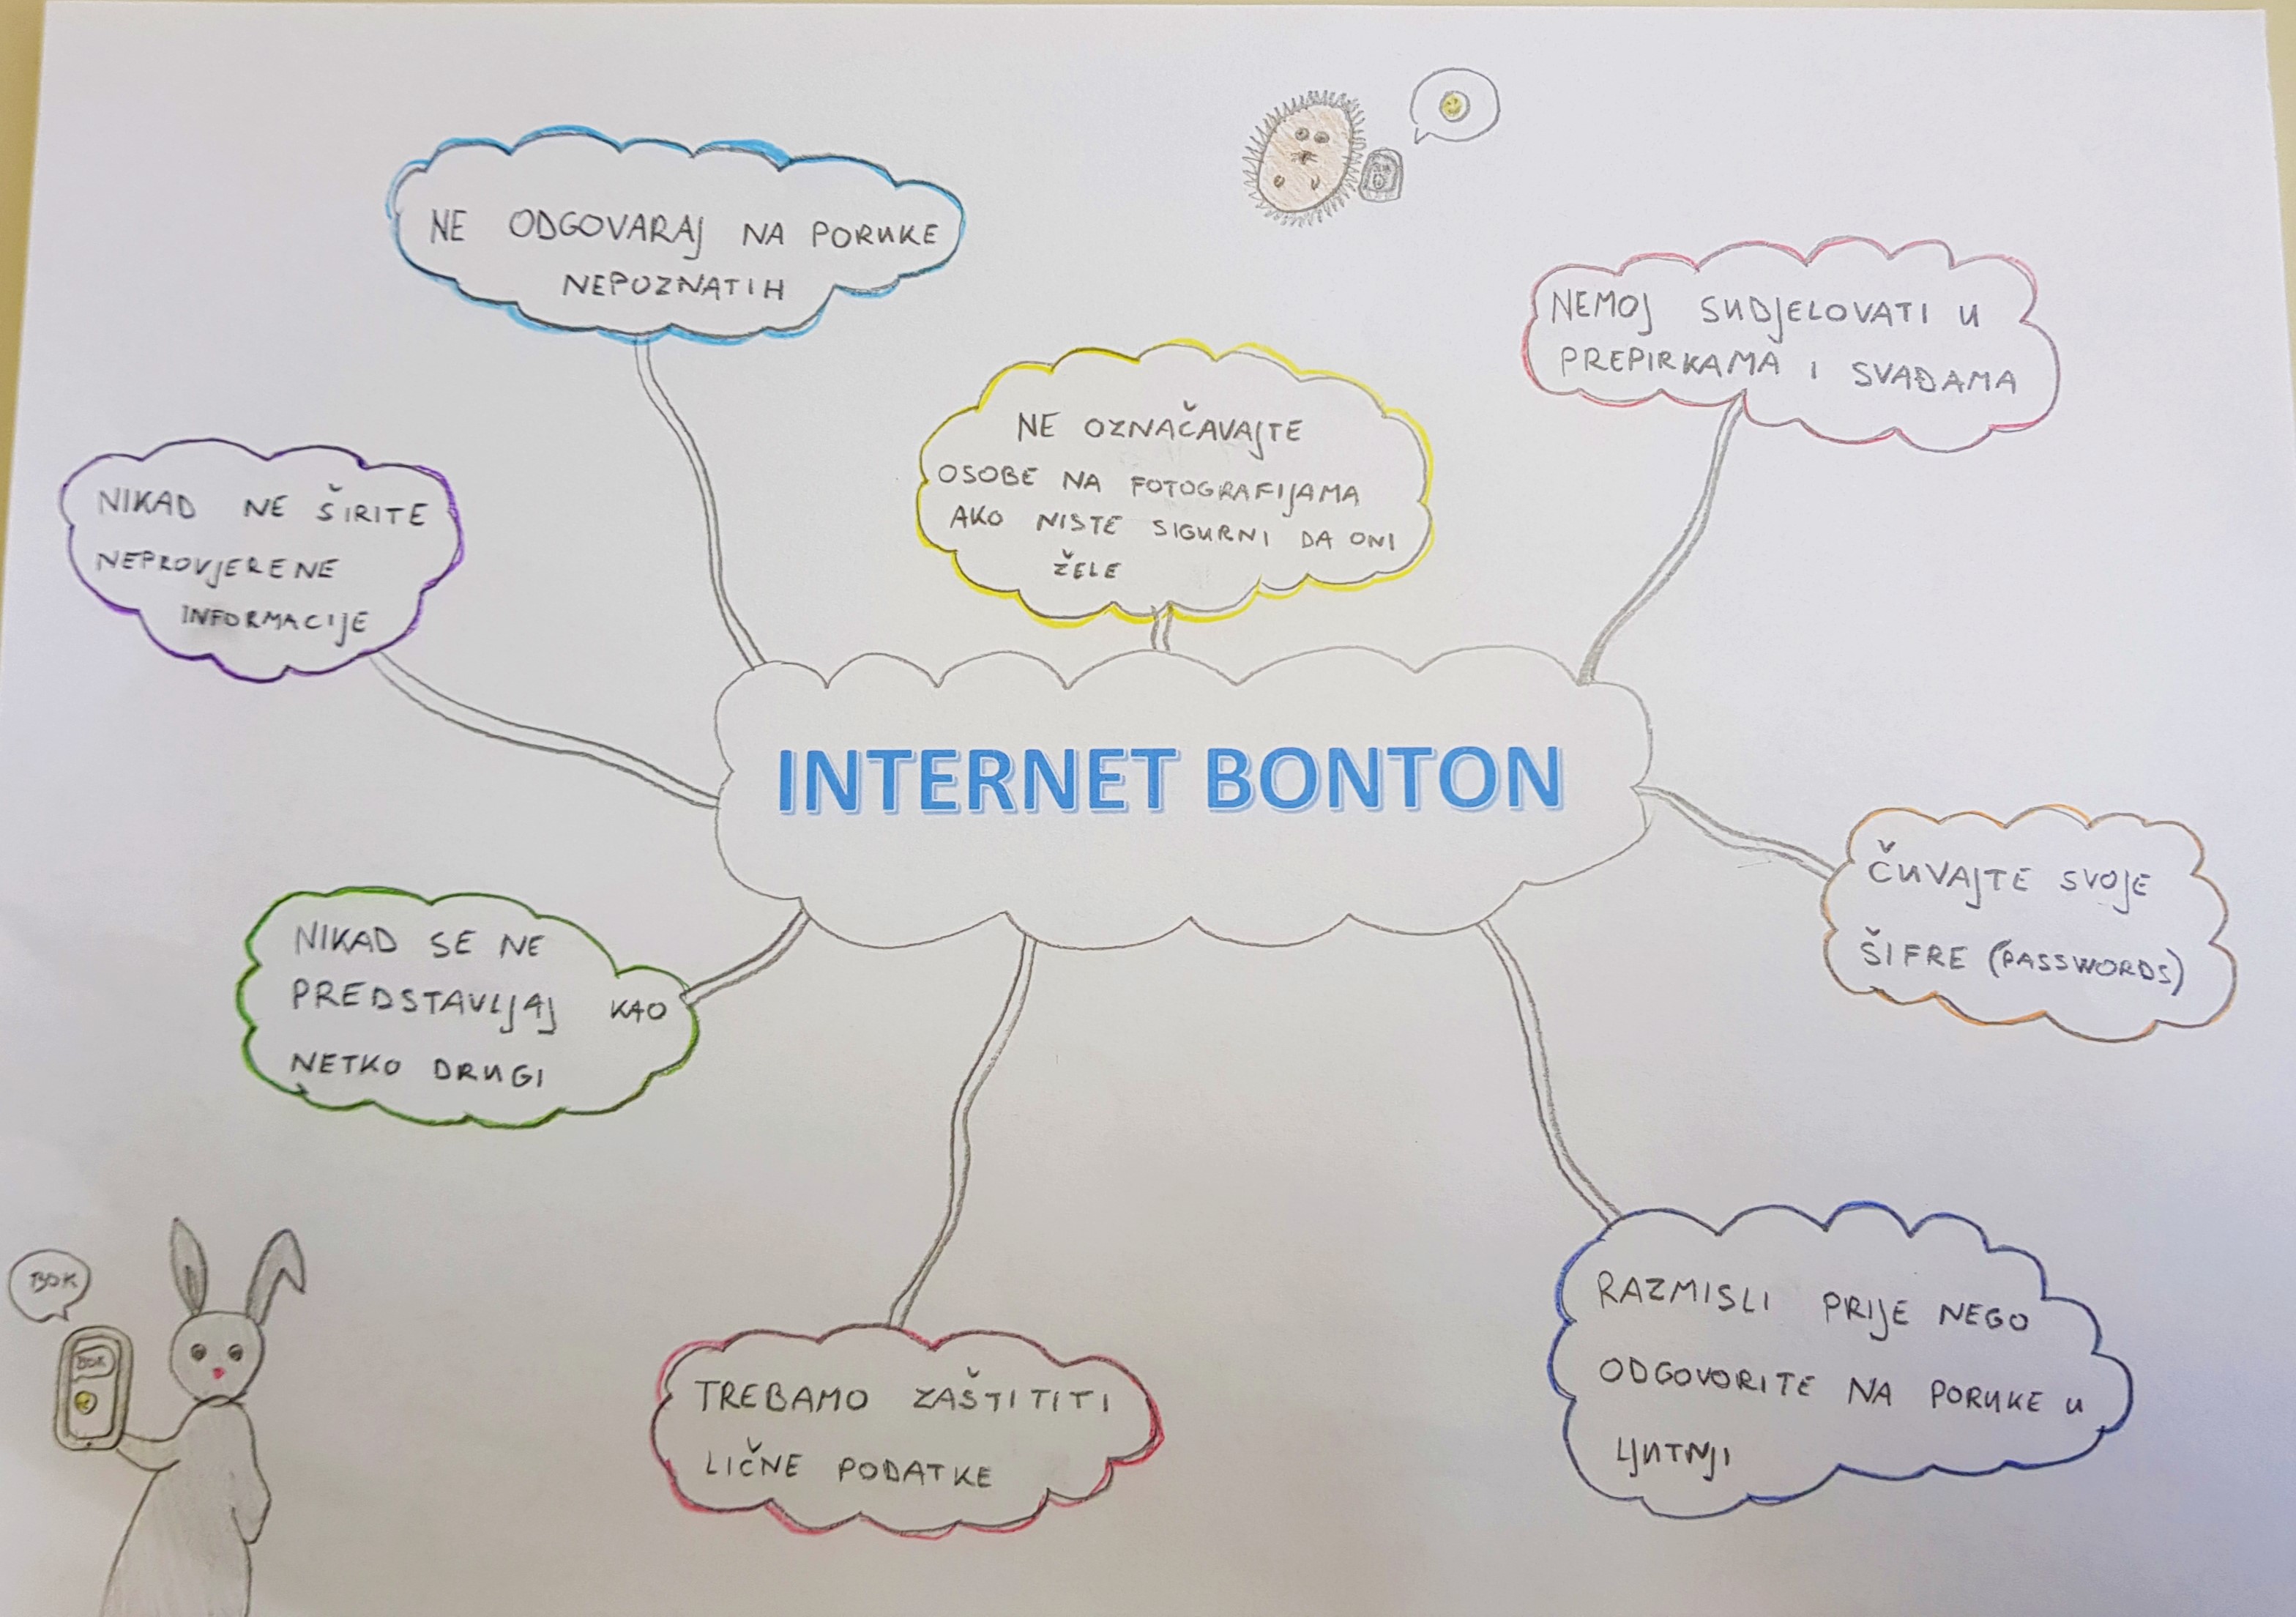 NE ODGOVARAJ NA PORUKE
NEPOZNATIH
NEMOJ SUDJELOVATI U
PREPIRKAMA I SVAĐAMA
NE OZNAČAVAJTE
OSOBE NA FOTOGRAFIJAMA
AKO NISTE SIGURNI DA ONI
ŽELE
NIKAD NE ŠIRITE
NEPROVJERENE
INFORMACIJE
INTERNET BONTON
ČUVAJTE SVOJE
ŠIFRE (PASSWORDS)
NIKAD SE NE
PREDSTAVLJAJ KAO
NETKO DRUGI
RAZMISLI PRIJE NEGO
ODGOVORITE NA PORUKE U
LJUTNJI
TREBAMO ZAŠTITITI
LIČNE PODATKE
BOK
BOK